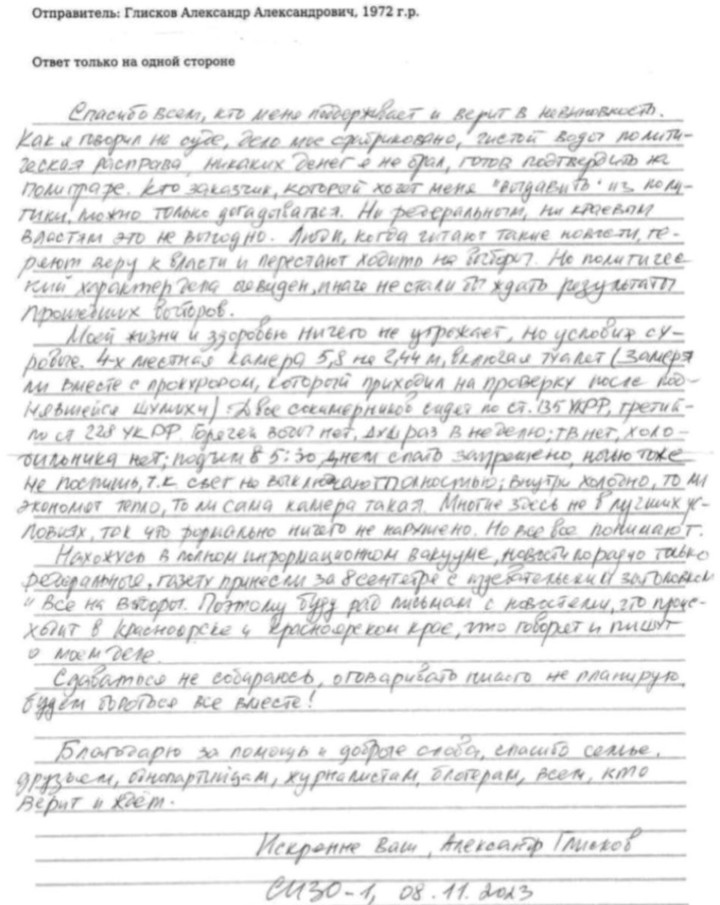 Отправитель: Глисков Александр Александрович, 1972 г.р.
Ответ только на одной стороне
Спасибо всем, кто меня поддерживает и верит в невиновность.
Как я говорил на суде, дело мое сфабриковано, чистой воды полити-
ческая расправа, никаких денег я не брал, готов подтвердить на
полиграфе. Кто заказчик, который хочет меня "выдавить" из поли-
тики, можно только догадываться. Ни федеральным, ни краевым
властям это не выгодно. Люди, когда читают такие новости, те-
ряют веру к власти и перестают ходить на выборы. Но политичес
кий характер дела очевиден, иначе не стали бы ждать результаты
прошедших выборов.
Моей жизни и здоровью ничего не угрожает, но условия су-
ровые. 4-х местная камера 5,8 на 2,44 м, включая туалет (замеря
ли вместе с прокурором, который приходил на проверку после под-
нявшейся шумихи). Двое сокамерников сидят по ст. 135 УКРФ, третий-
по ст 228 УК РФ. Горячей воды нет, душ раз в неделю; ТВ нет, холо-
дильника нет; подъем в 5:30, днем спать запрещено, ночью тоже
не поспишь, т.к. свет не выключают полностью; внутри холодно, то ли
экономят тепло, то ли сама камера такая. Многие здесь не в лучших ус-
ловиях, так что формально ничего не нарушено. Но все все понимают.
Нахожусь в полном информационном вакууме, новости по радио только
федеральные, газету принесли за 8 сентября с заголовком
"Все на выборы. Поэтому буду рад письмам с новостями, что проис-
ходит в Красноярске и Красноярском крае, что говорят и пишут
о моем деле.
Сдаваться не собираюсь, оговаривать никого не планирую,
будем бороться все вместе!
Благодарю за помощь и добрые слова, спасибо семье,
друзьям, однопартийцам, журналистам, блогерам, всем, кто
верит и ждёт.
Искренне ваш, Александр Глисков
СИЗО-1, 08.11.2023